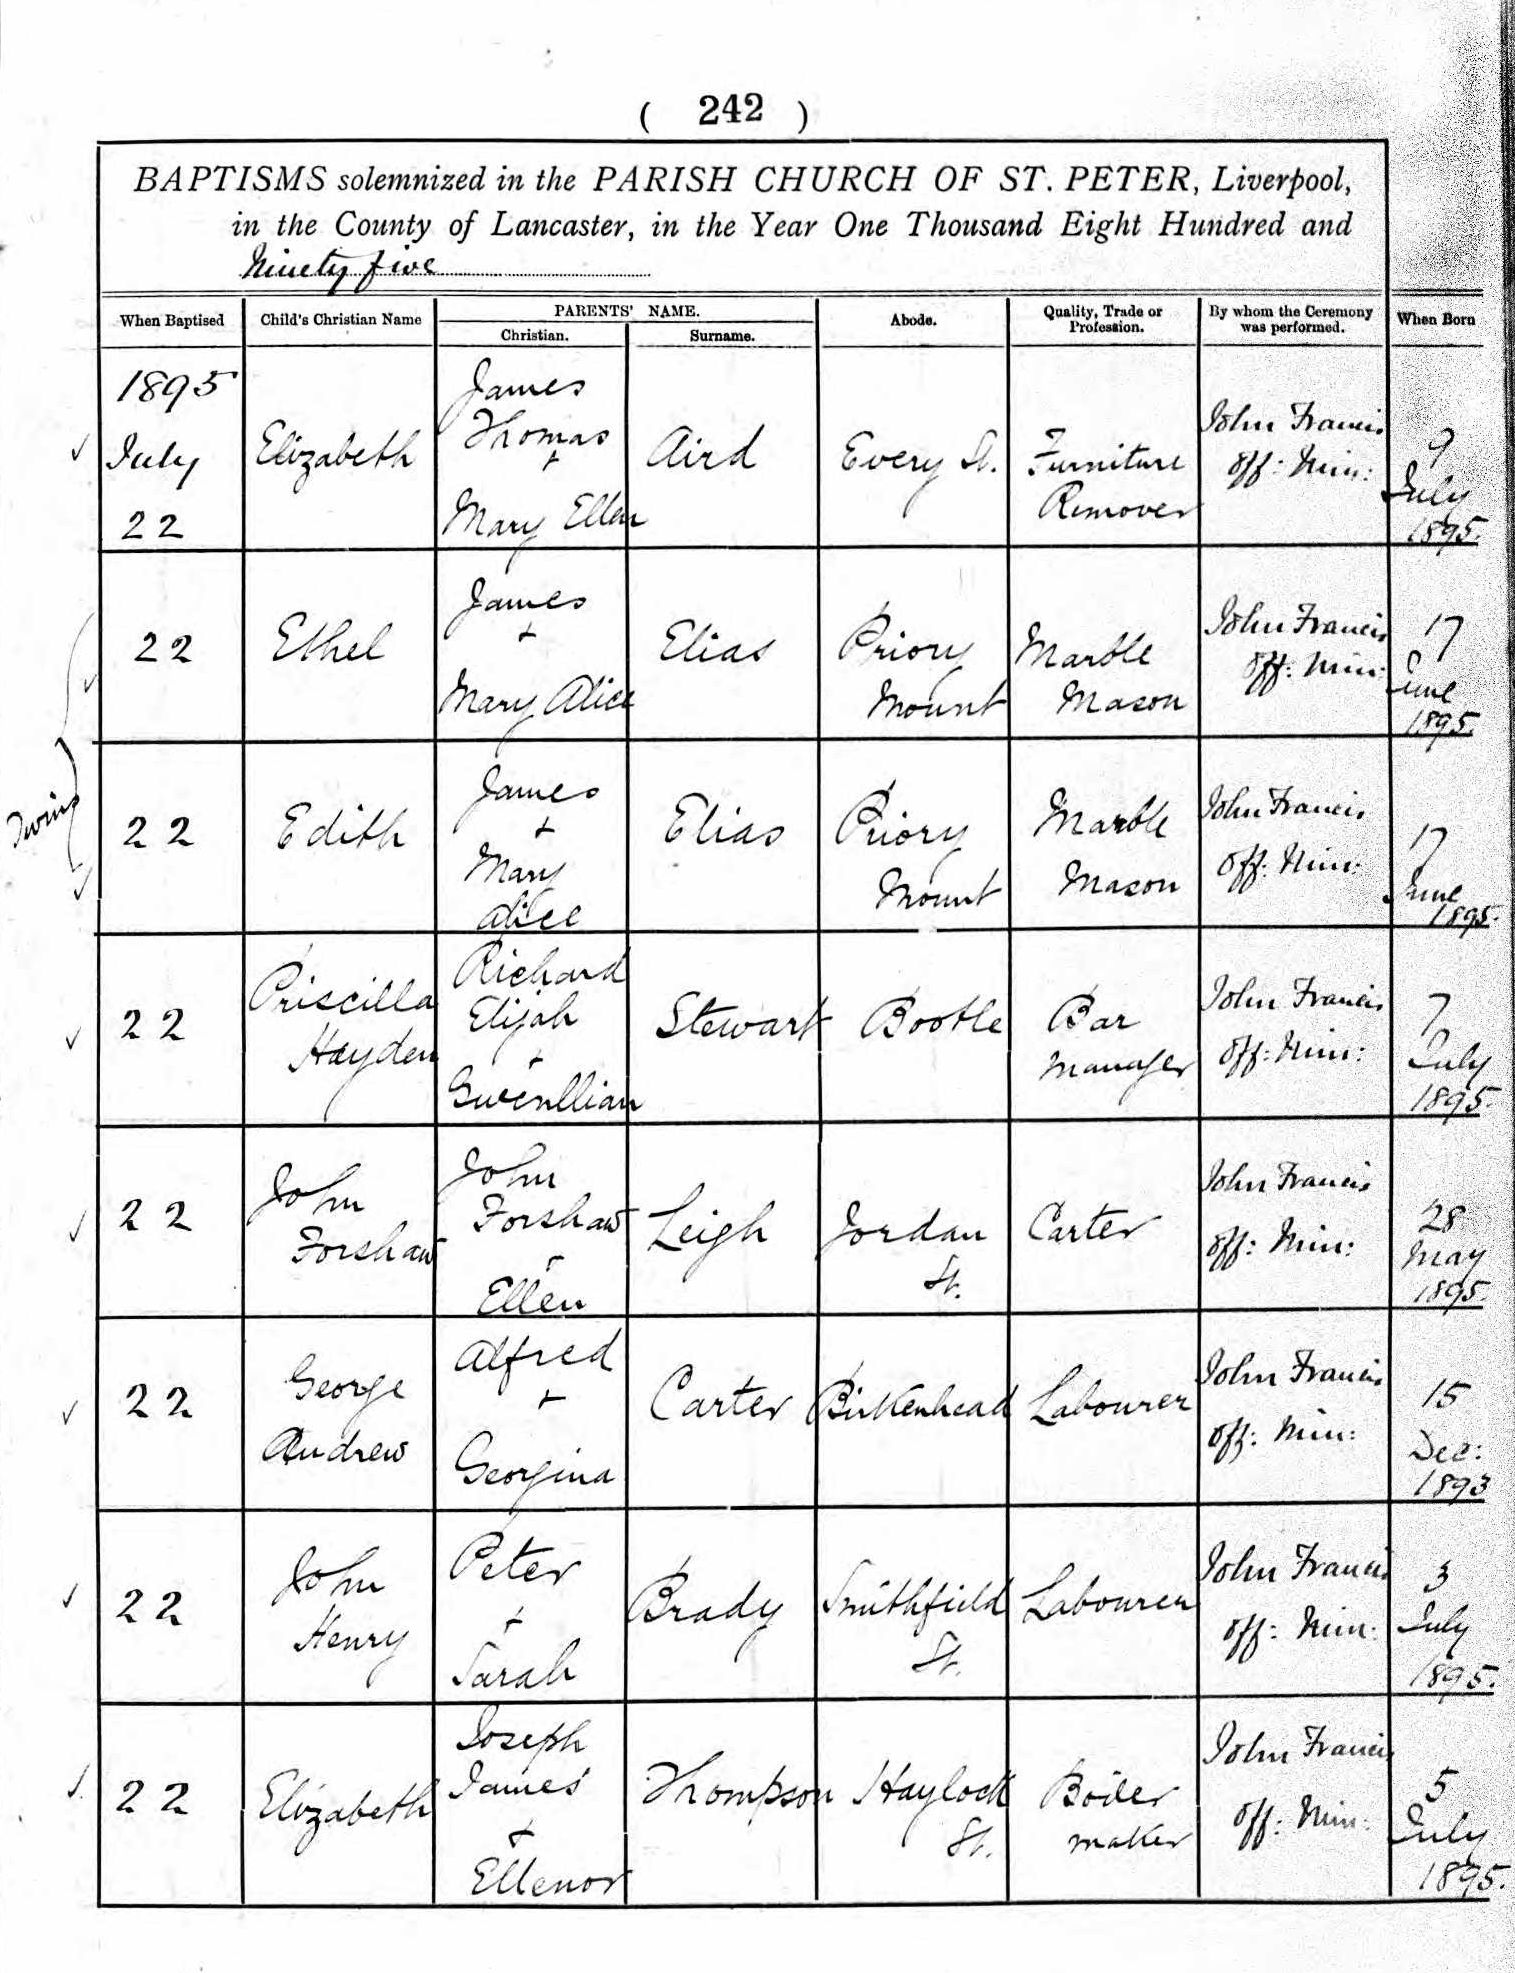 ( 242 )
BAPTISMS solemnized in the PARISH CHURCH OF ST. PETER, Liverpool,
in the County of Lancaster, in the Year One Thousand Eight Hundred and
Ninety five
When Baptised
Child's Christian Name
PARENTS' NAME.
Christian.
Surname.
Abode.
Quality, Trade or
Profession.
By whom the Ceremony
was performed.
When Born
1895
July
22
Elizabeth
James
Thomas
+
Mary Ellen
Aird
Every St.
Furniture
Remover
John Francis
Off: Min:
9
July
1895.
22
Ethel
James
+
Mary Alice
Elias
Priory
Mount
Marble
Mason
John Francis
Off: Min:
17
June
1895.
Twins
22
Edith
James
+
Mary
Alice
Elias
Priory
Mount
Marble
Mason
John Francis
Off: Min:
17
June
1895.
22
Priscilla
Hayden
Richard
Elijah
+
Gwenllian
Stewart
Bootle
Bar
Manager
John Francis
Off: Min:
7
July
1895.
22
John
Forshaw
John
Forshaw
+
Ellen
Leigh
Jordan
St.
Carter
John Francis
Off: Min:
28
May
1895.
22
George
Andrew
Alfred
+
Georgina
Carter
Birkenhead
Labourer
John Francis
Off: Min:
15
Dec:
1893
22
John
Henry
Peter
+
Sarah
Brady
Smithfield
St.
Labourer
John Francis
Off: Min:
3
July
1895.
22
Elizabeth
Joseph
James
+
Ellenor
Thompson
Haylock
St.
Boiler
maker
John Francis
Off: Min:
5
July
1895.